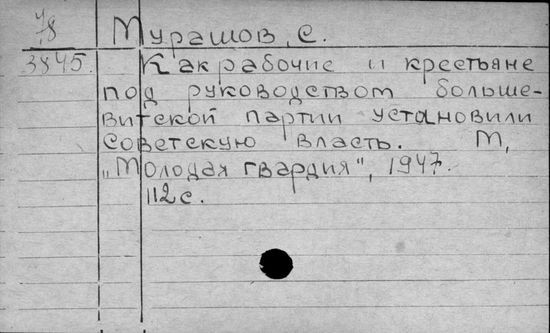 78 Мурашов, С.
3845. Как рабочие и крестьяне
под руководством больше-
витской партии установили
Советскую власть. М,
„Молодая гвардия", 1947.
112 с.